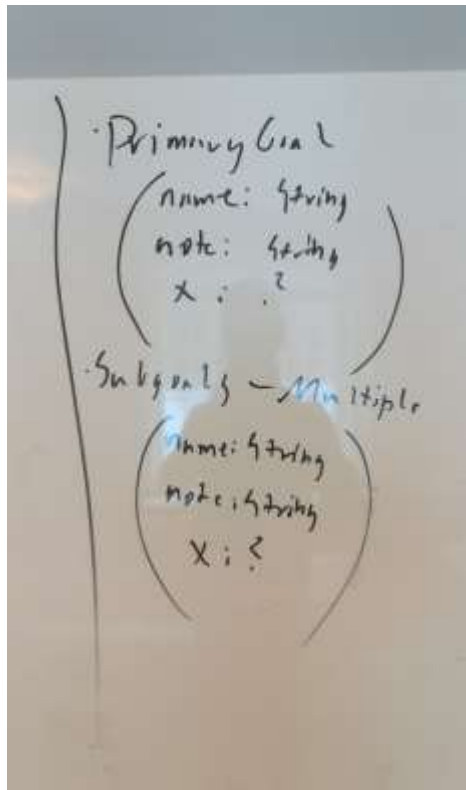 · Primary Goal
name: String
note: String
x : ?
· Subgoals - Multiple
name: String
note: String
x : ?